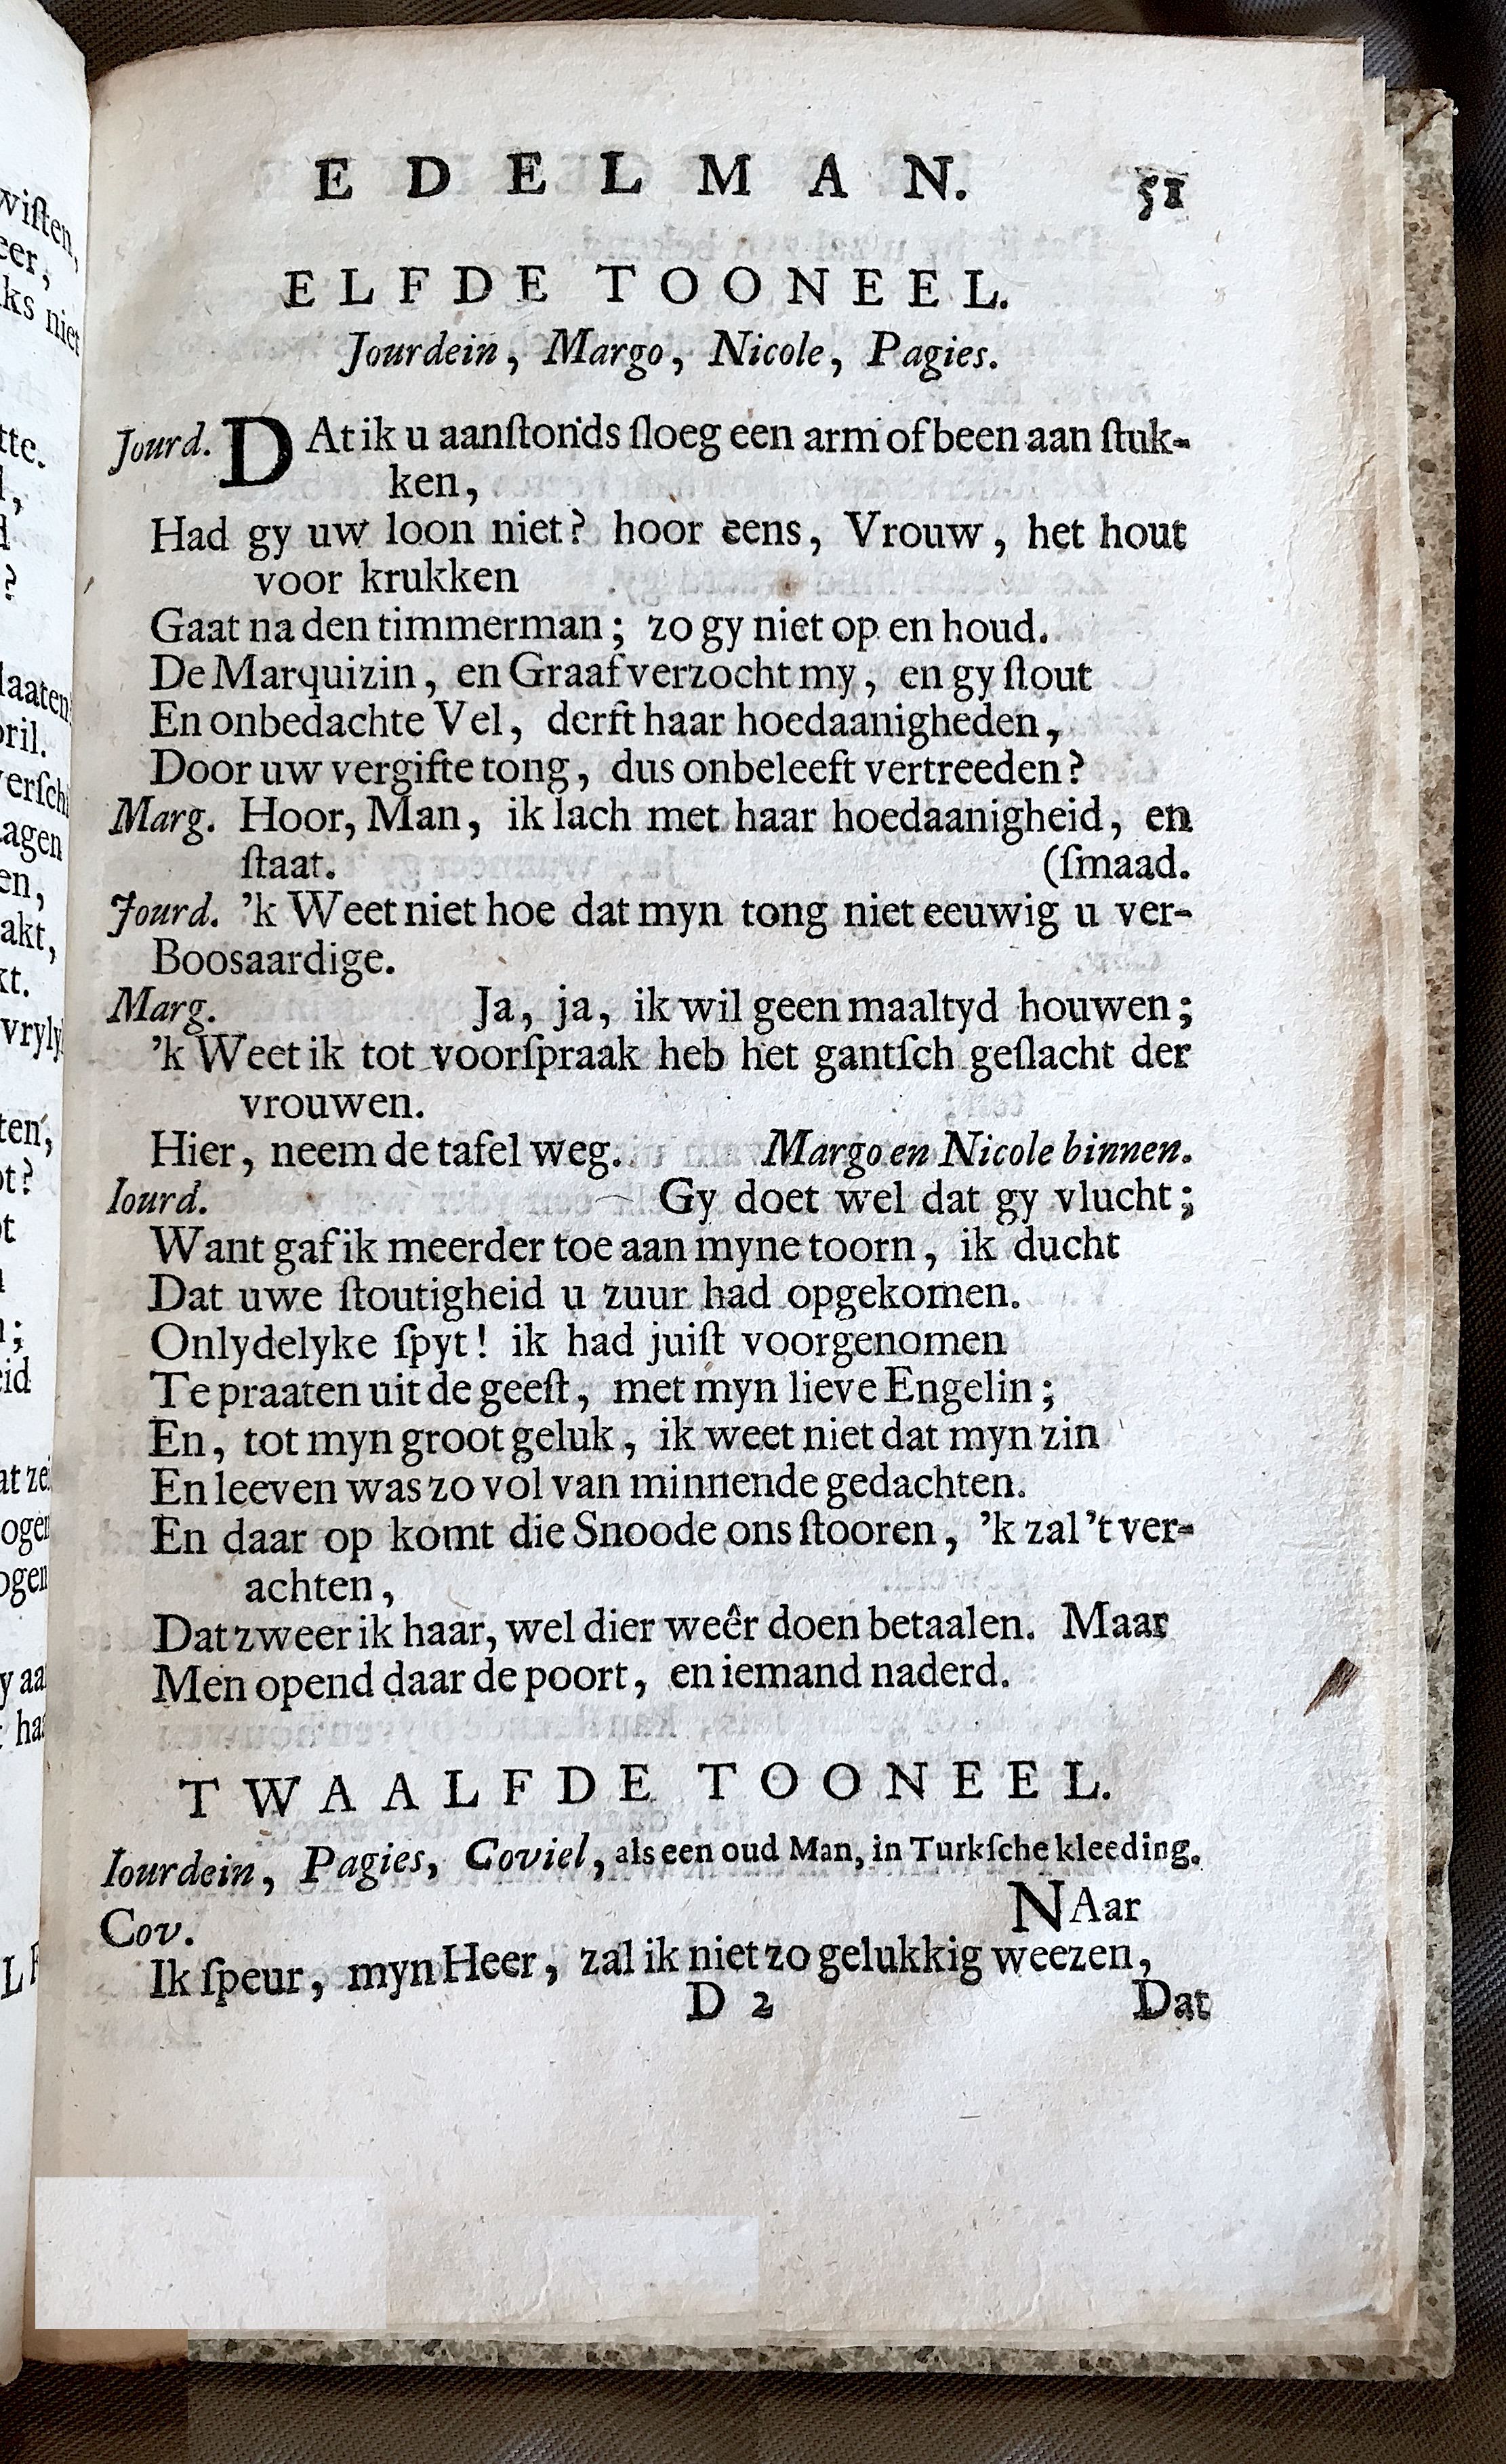 EDELMAN. 51
ELFDE TOONEEL.
Jourdein, Margo, Nicole, Pagies.
Jourd. DAt ik u aanſtonds ſloeg een arm of been aan ſtuk-
ken,
Had gy uw loon niet? hoor eens, Vrouw, het hout
voor krukken
Gaat na den timmerman; zo gy niet op en houd.
De Marquizin, en Graaf verzocht my, en gy ſtout
En onbedachte Vel, derft haar hoedaanigheden,
Door uw vergifte tong, dus onbeleeft vertreeden?
Marg. Hoor, Man, ik lach met haar hoedaanigheid, en
ſtaat. (ſmaad.
Jourd. 'k Weet niet hoe dat myn tong niet eeuwig u ver-
Boosaardige.
Marg. Ja, ja, ik wil geen maaltyd houwen;
'k Weet ik tot voorſpraak heb het gantſch geſlacht der
vrouwen.
Hier, neem de tafel weg. Margo en Nicole binnen.
Iourd. Gy doet wel dat gy vlucht;
Want gaf ik meerder toe aan myne toorn, ik ducht
Dat uwe ſtoutigheid u zuur had opgekomen.
Onlydelyke ſpyt! ik had juiſt voorgenomen
Te praaten uit de geeſt, met myn lieve Engelin;
En, tot myn groot geluk, ik weet niet dat myn zin
En leeven was zo vol van minnende gedachten.
En daar op komt die Snoode ons ſtooren, 'k zal 't ver-
achten,
Dat zweer ik haar, wel dier weêr doen betaalen. Maar
Men opend daar de poort, en iemand naderd.
TWAALFDE TOONEEL.
Iourdein, Pagies, Coviel, als een oud Man, in Turkſche kleeding.
Cov. NAar
Ik ſpeur, myn Heer, zal ik niet zo gelukkig weezen,
D 2 Dat